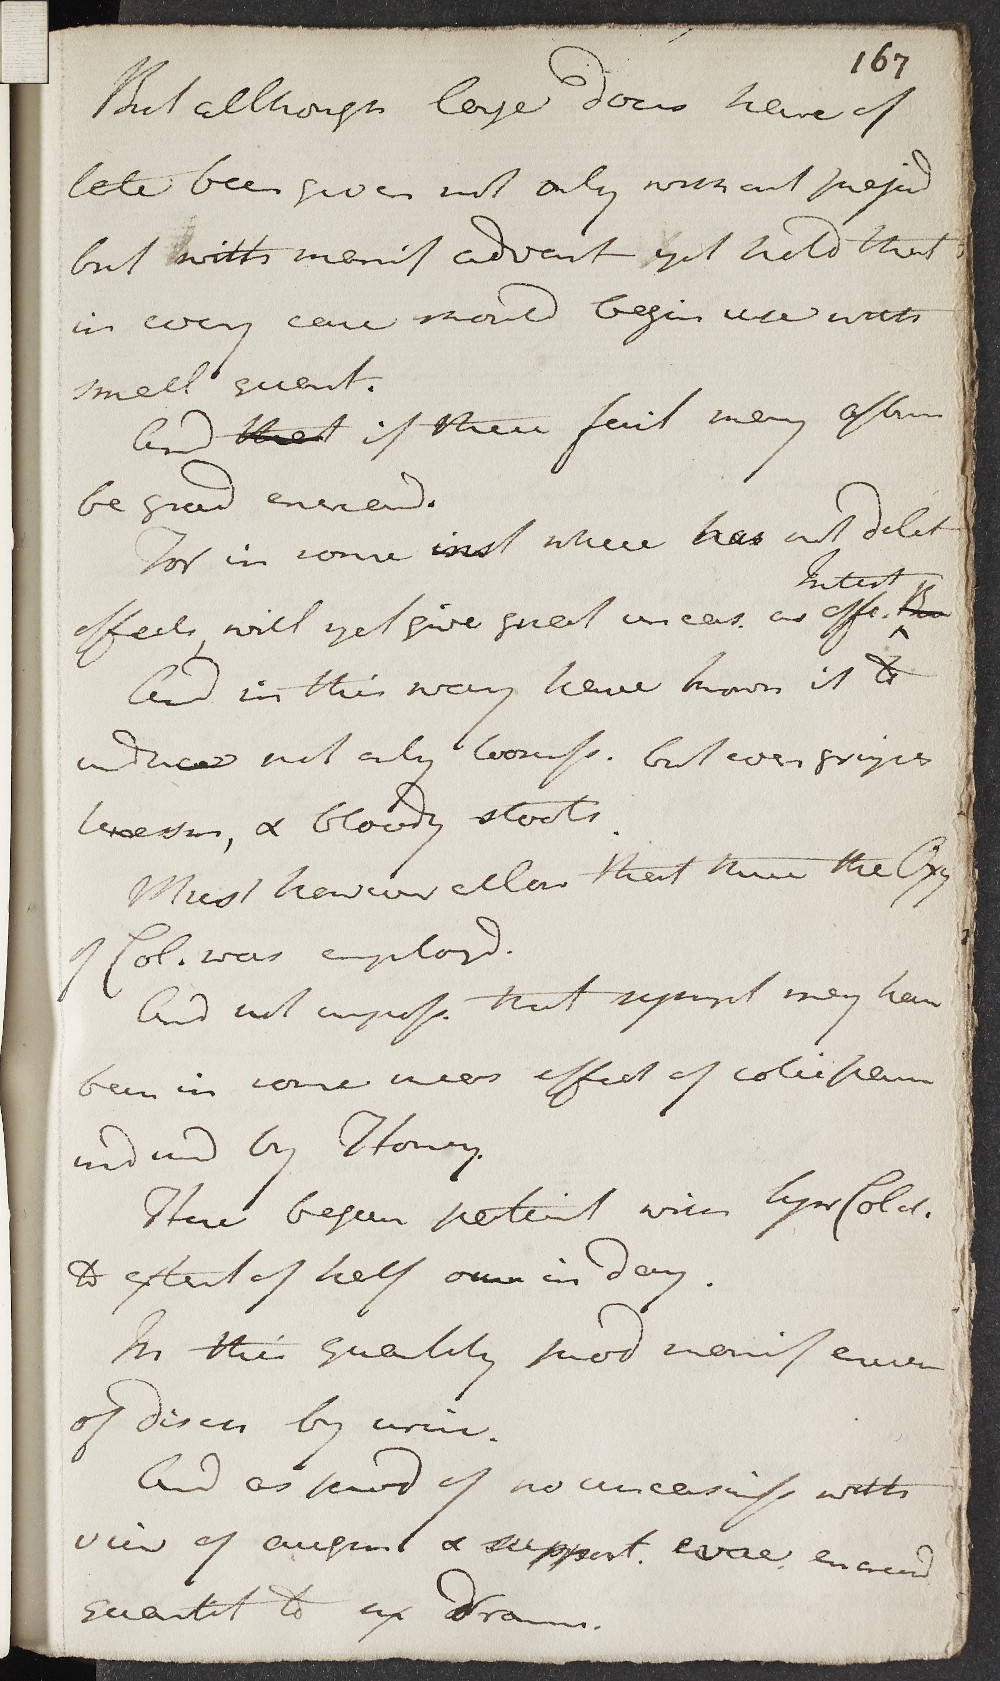 167
But although large doses have of
late been given not only without prejud
but with manif advant yet hold that
in every case should begin use with
small quant.
And that if these fail may afterw
be grad encreasd.
For in some inst where has not delet
Intest
effects, will yet give great uneas. as affe.
And in this way have known it to
induce not only loosness. but even gripes
 & bloody stools.
Must however allow that here the Oxy
of Col. was employd.
And not imposs. that sympt may have
been in some meas effect of
induced by Honey.
Here began patient with Syr Colch.
to extent of half ounce in day.
In this quantity prod manif encrea
of disch by urine.
And as prod of no uneasiness with
view of augment & support. evac. encreasd
quantit to six drams.